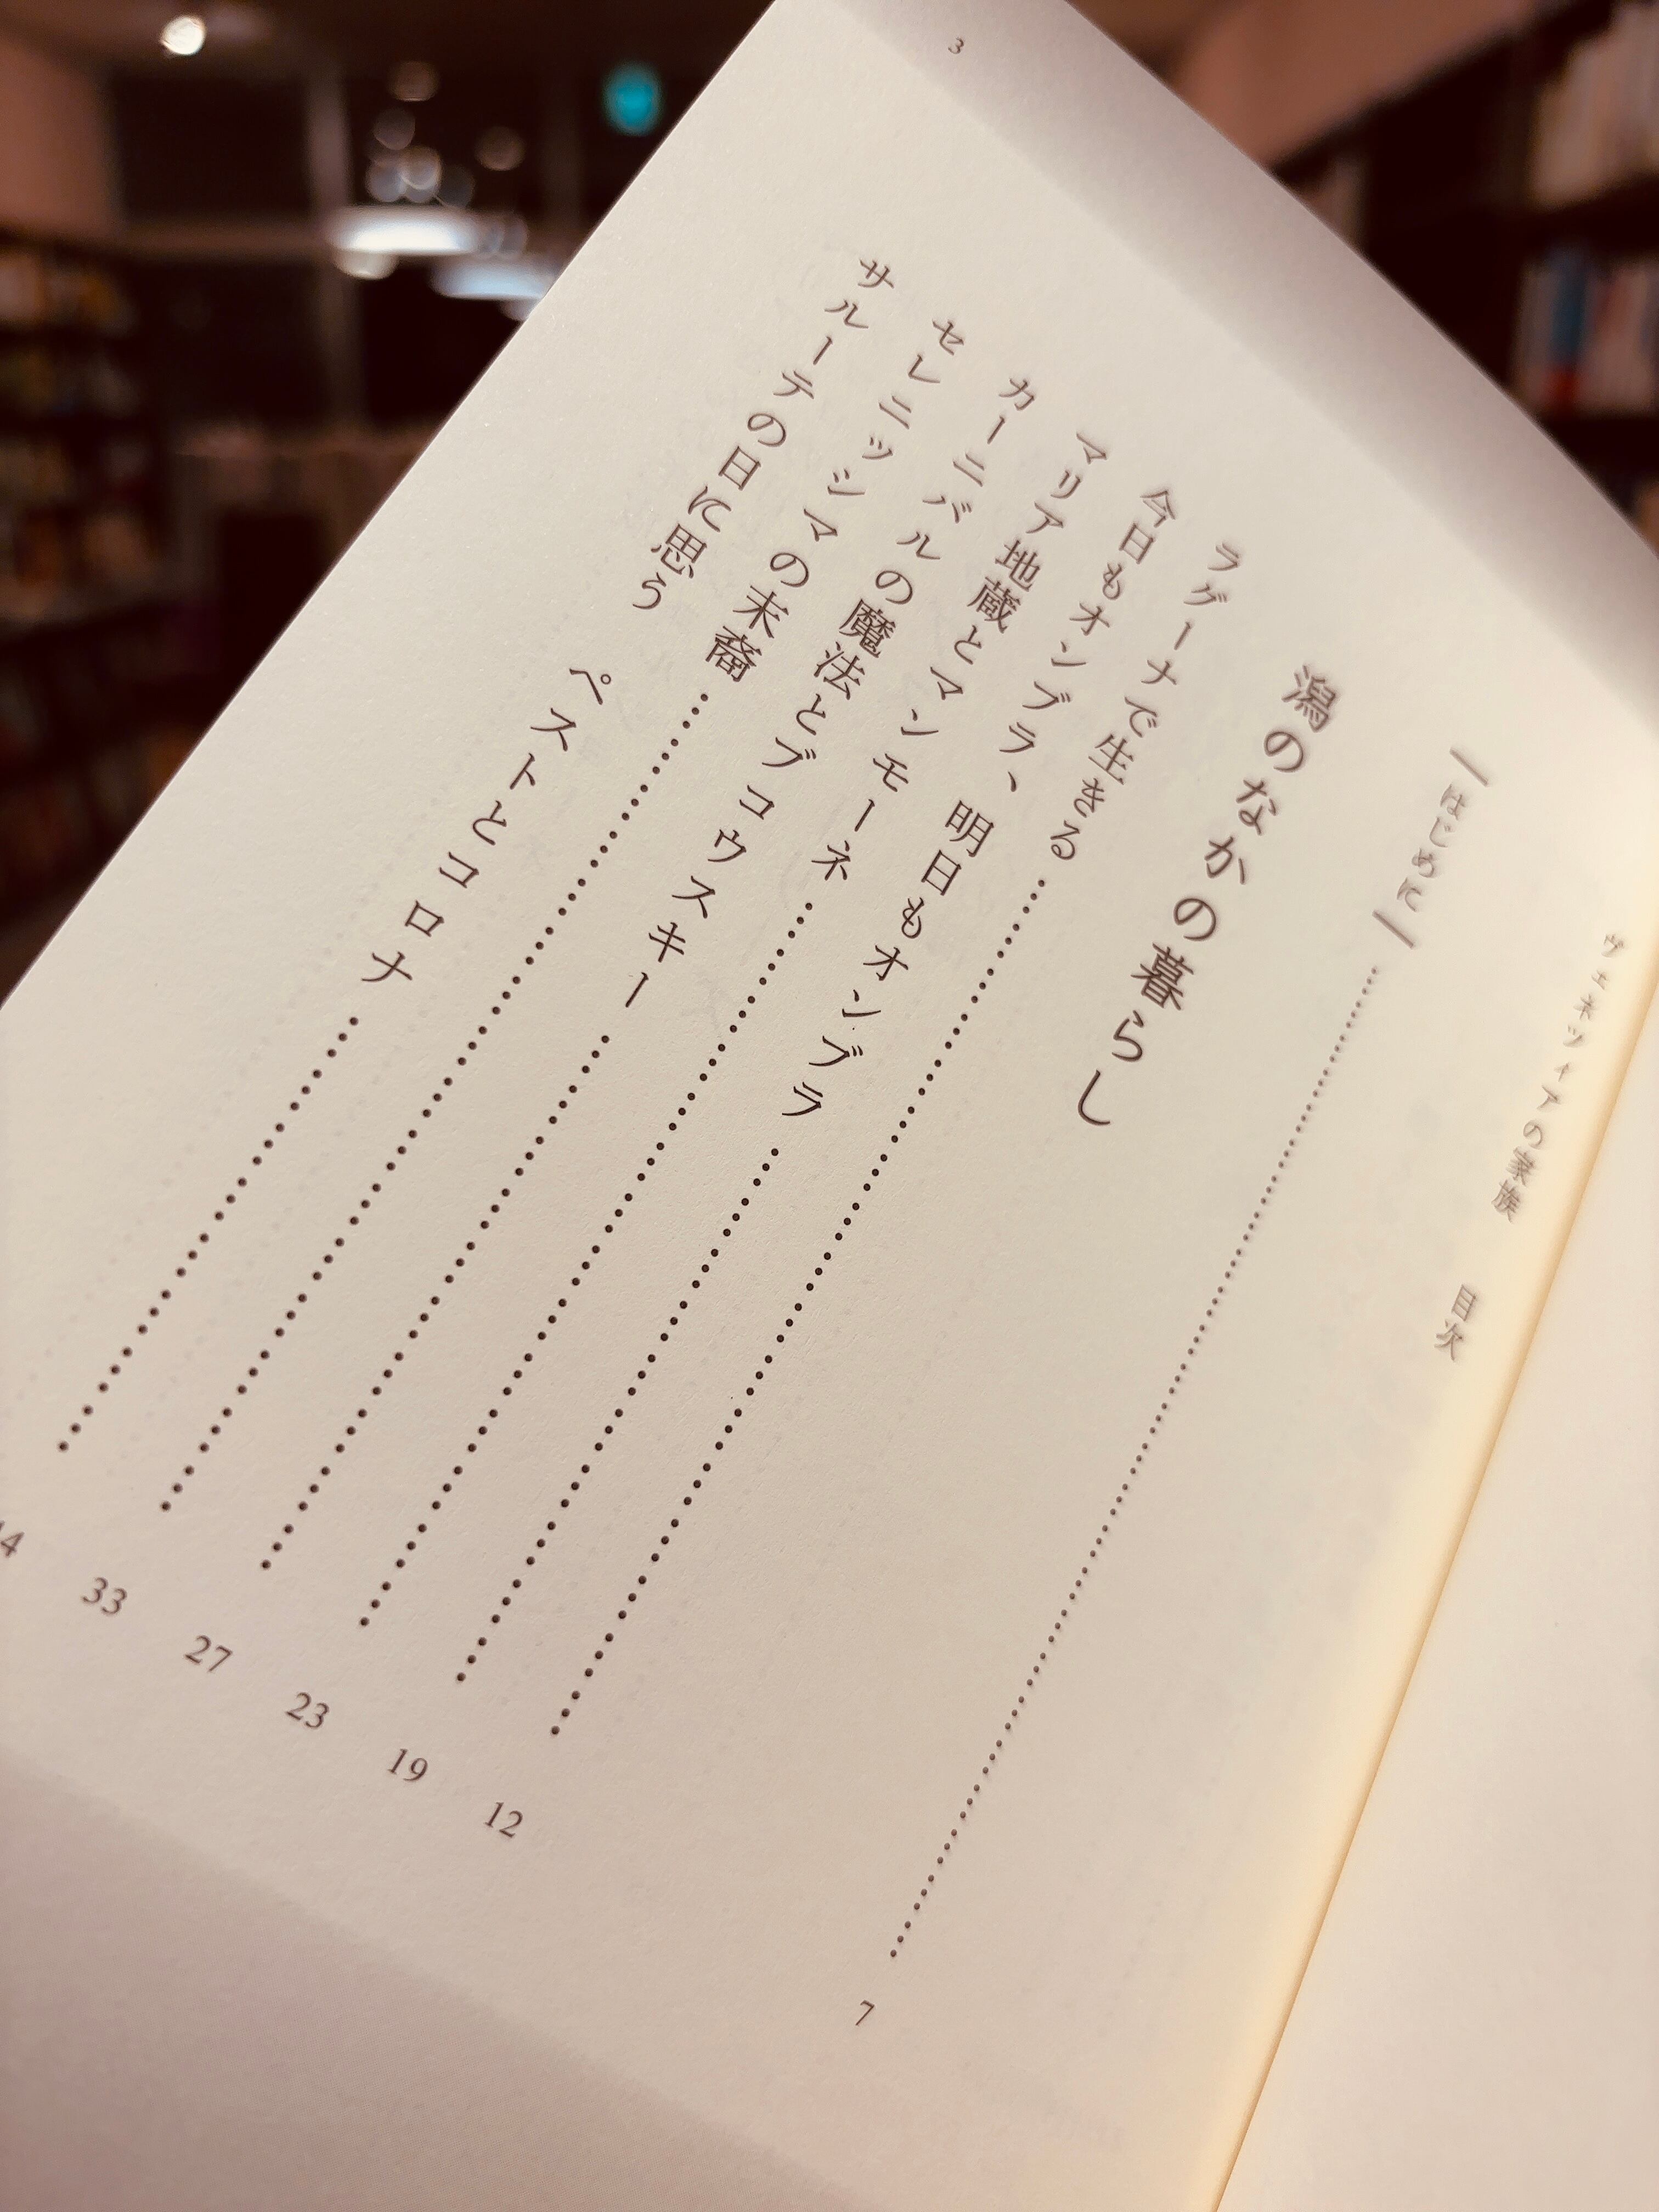 ヴェネツィアの家族　目次
｜はじめに｜……………7
潟のなかの暮らし
ラグーナで生きる……………12
今日もオンブラ、明日もオンブラ……………19
マリア地蔵とマンモーネ……………23
カーニバルの魔法とブコウスキー……………27
セレニッシマの末裔……………33
サルーテの日に思う　ペストとコロナ……………
3